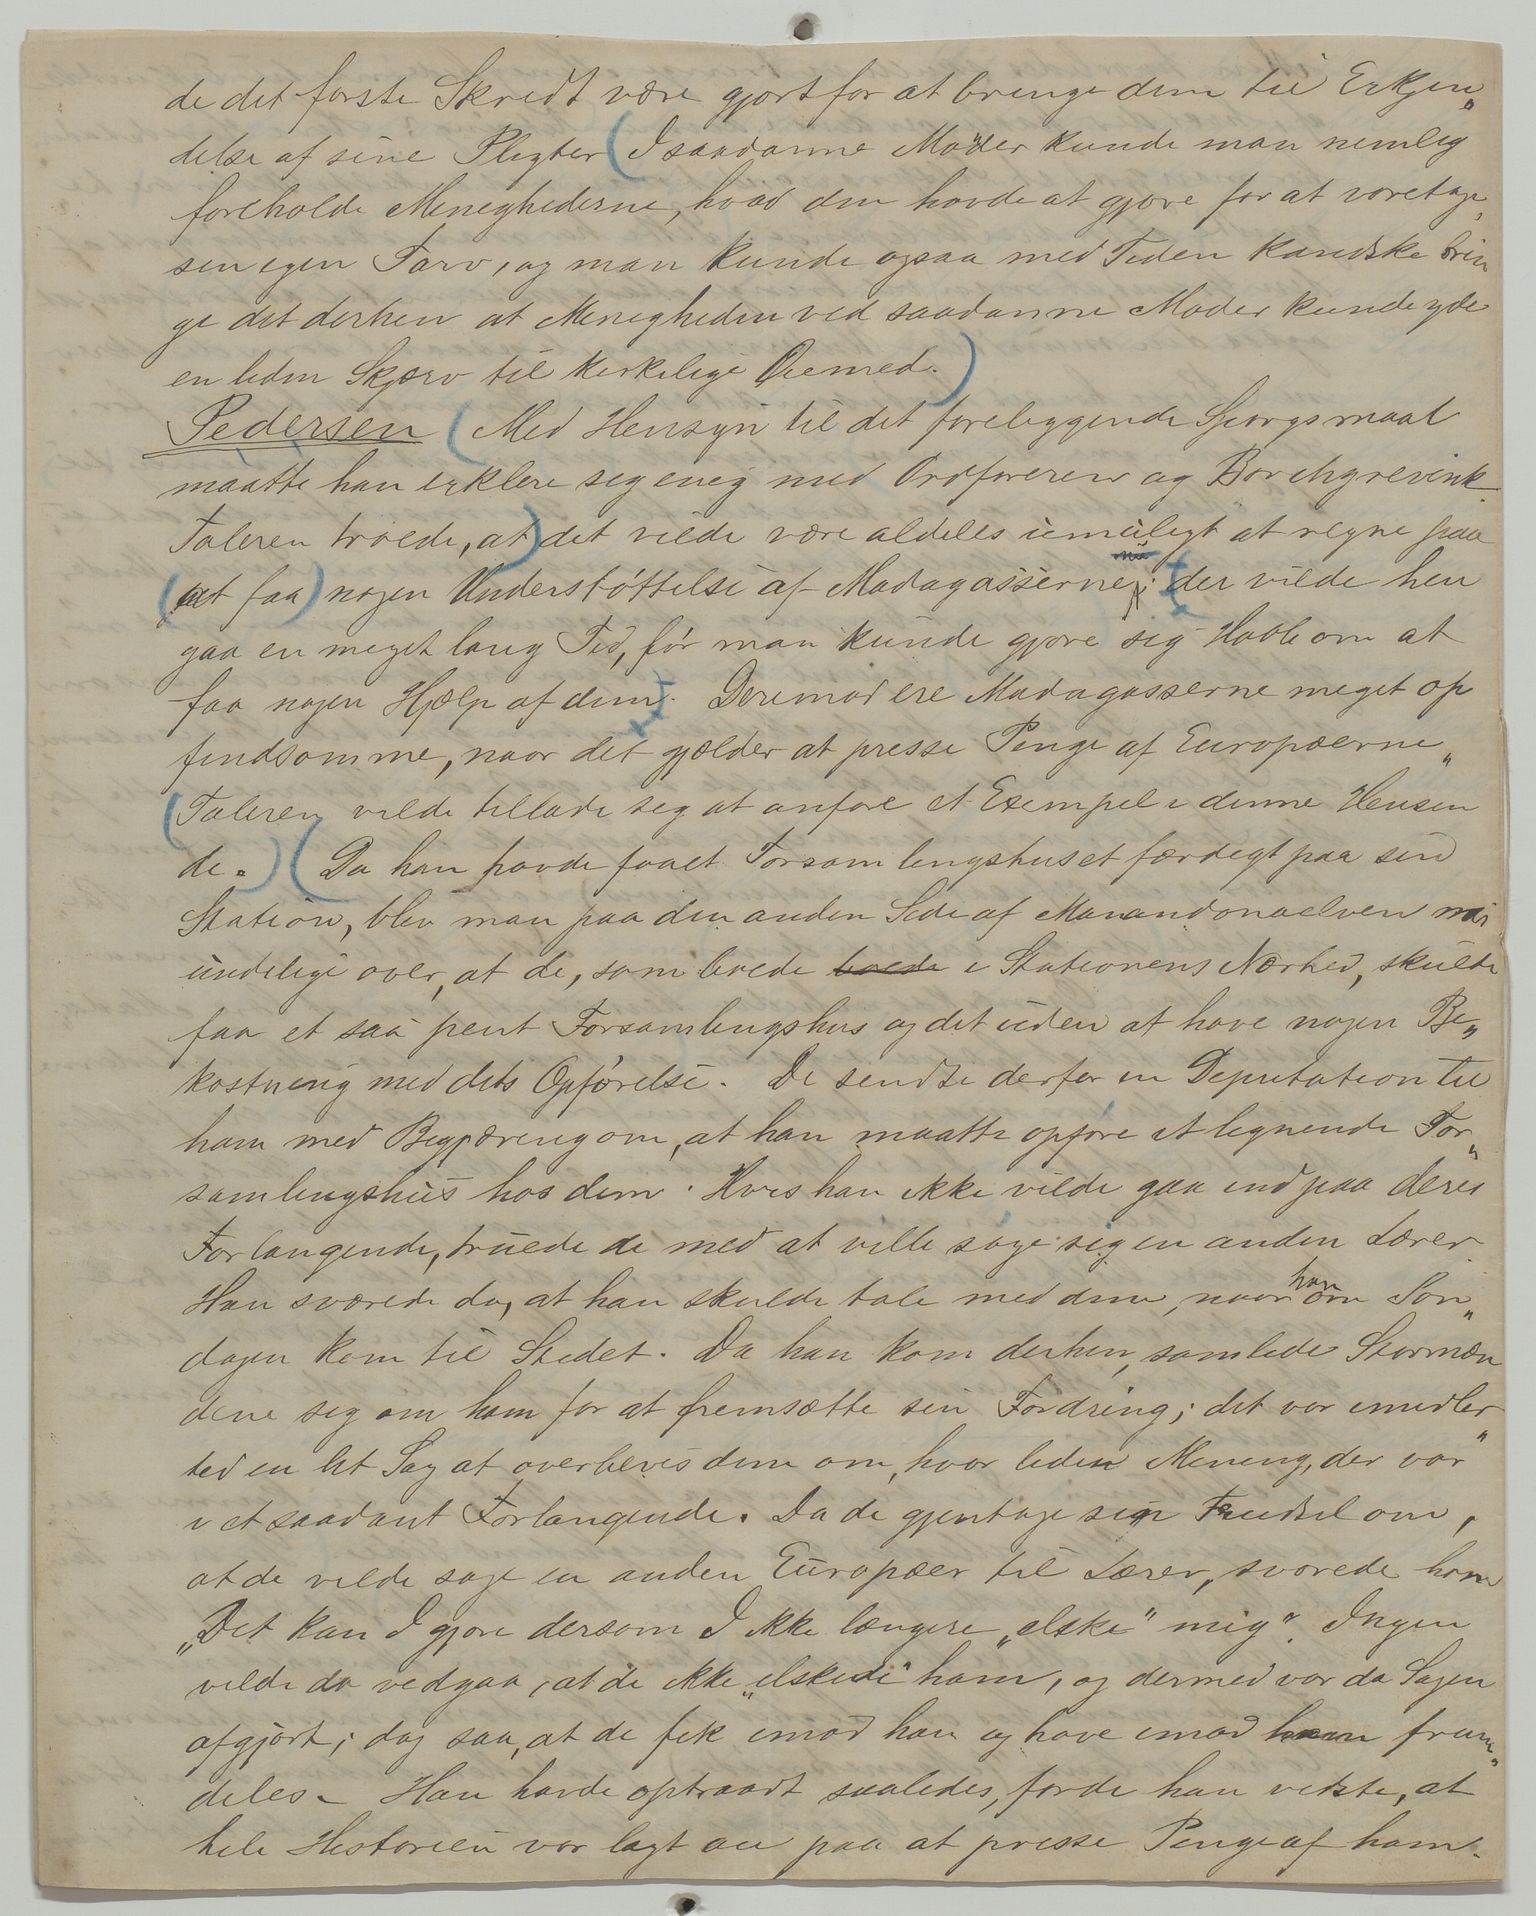 de det første Skridt være gjort for at bringe dem til Erkjen„
delse af sine Pligter (I saadanne Møder kunde man nemlig
foreholde Menighederne, hvad den havde at gjøre for at varetage
sin egen Tarv, og man kunde ogsaa med Tiden kandske brin
ge det derhen at Menigheden ved saadanne Møder kunde yde
en liden Skjærv til kirkelige Øiemed.)
Pedersen (Med Hensyn til det foreliggende Spørgsmaal
maatte han erklere sig enig med Ordføreren og Borchgrevink.
Taleren troede, at) det vilde være aldeles umuligt at regne paa
(at faa) nogen Understøttelse af Madagasserne; der vilde hen
gaa en meget lang Tid, før man kunde gjøre sig Haab om at
faa nogen Hjælp af dem. Derimod ere Madagasserne meget op
findsomme, naar det gjælder at presse Penge af Europæerne„
(Taleren vilde tillade sig at anføre et Exempel i denne Henseen
de.) (Da han havde faaet Forsamlingshuset færdigt paa sin
Station, blev man paa den anden Side af Manandonaelven mis
undelige over, at de, som boede boede i Stationens Nærhed, skulde
faa et saa pent Forsamlingshus og det uden at have nogen Be„
kostning med dets Opførelse. De sendte derfor en Deputation til
ham med Begjæring om, at han maatte opføre et lignende For„
samlingshus hos dem. Hvis han ikke vilde gaa ind paa deres
Forlangende, truede de med at ville søge sig en anden Lærer.
Han svarede da, at han skulde tale med dem, naar han om Søn„
dagen kom til Stedet. Da han kom derhen, samlede Stormæn
dene sig om ham for at fremsætte sin Fordring; det var imidler„
tid en let Sag at overbevise dem om, hvor liden Mening, der var
i et saadant Forlangende. Da de gjentoge sin Trudsel om,
at de vilde søge en anden Europæer til Lærer, svarede han
„Det kan I gjøre dersom I ikke længere „elske" mig". Ingen
vilde da vedgaa, at de ikke „elskede" ham, og dermed var da Sagen
afgjort; dog saa, at de fik imod ham og have imod ham frem„
deles. Han havde optraadt saaledes, fordi han vidste, at
hele Historien var lagt an paa at presse Penge af ham.